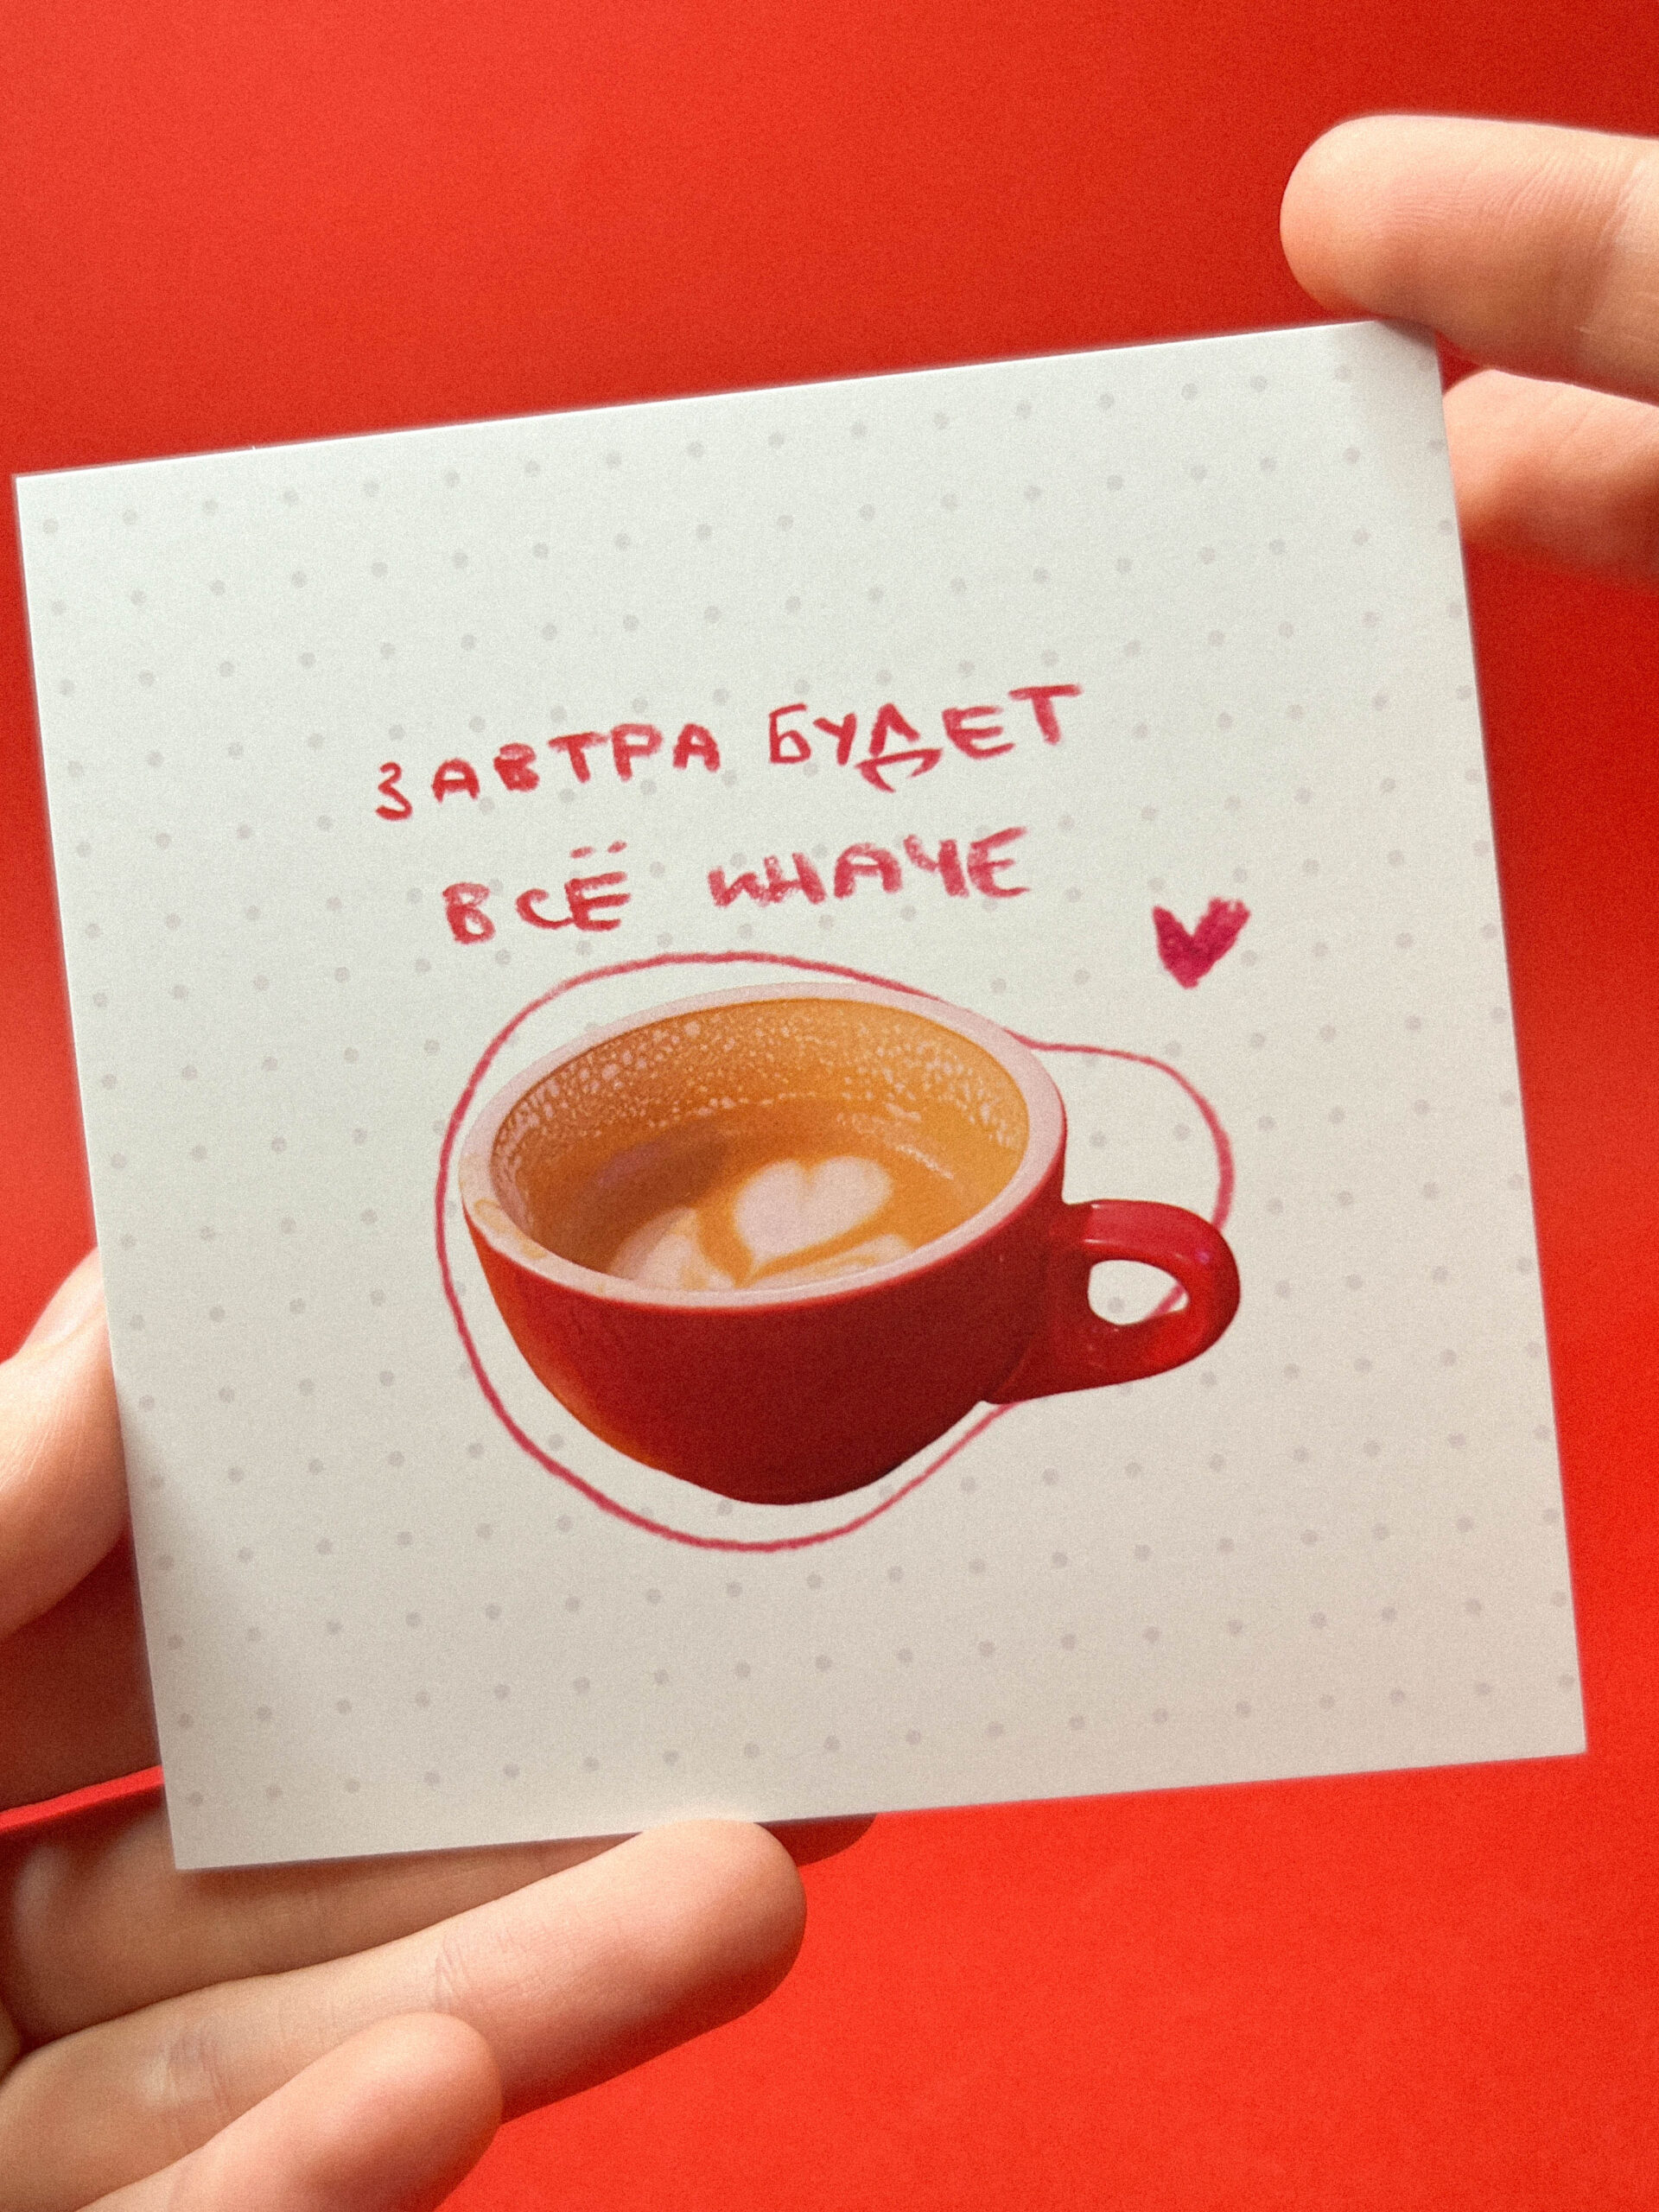 ЗАВТРА БУДЕТ
ВСЁ ИНАЧЕ